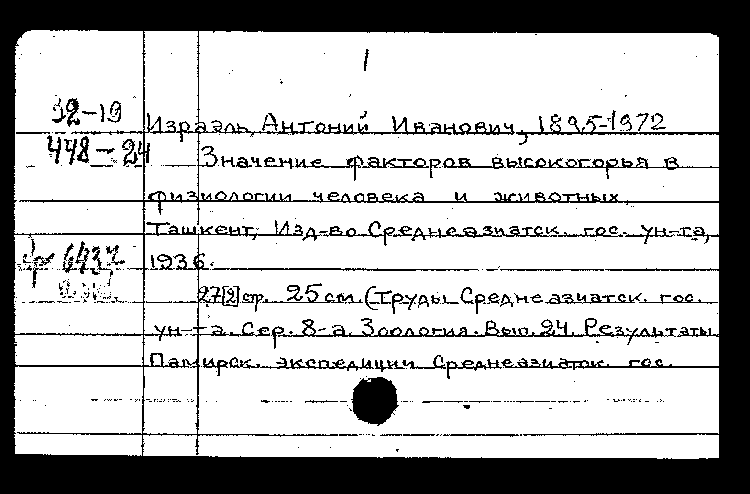 1
32-19
Израэль, Антоний Иванович, 1895-1972
448-24
Значение факторов высокогорья в
физиологии человека и животных.
Ташкент, Изд-во Среднеазиатск. гос. ун-та,
1936.
27[2] стр. 25 см. (Труды Среднеазиатск. гос.
ун-та. Сер. 8-а. Зоология. Вып. 24. Результаты
Памирск. экспедиции Среднеазиатск. гос.